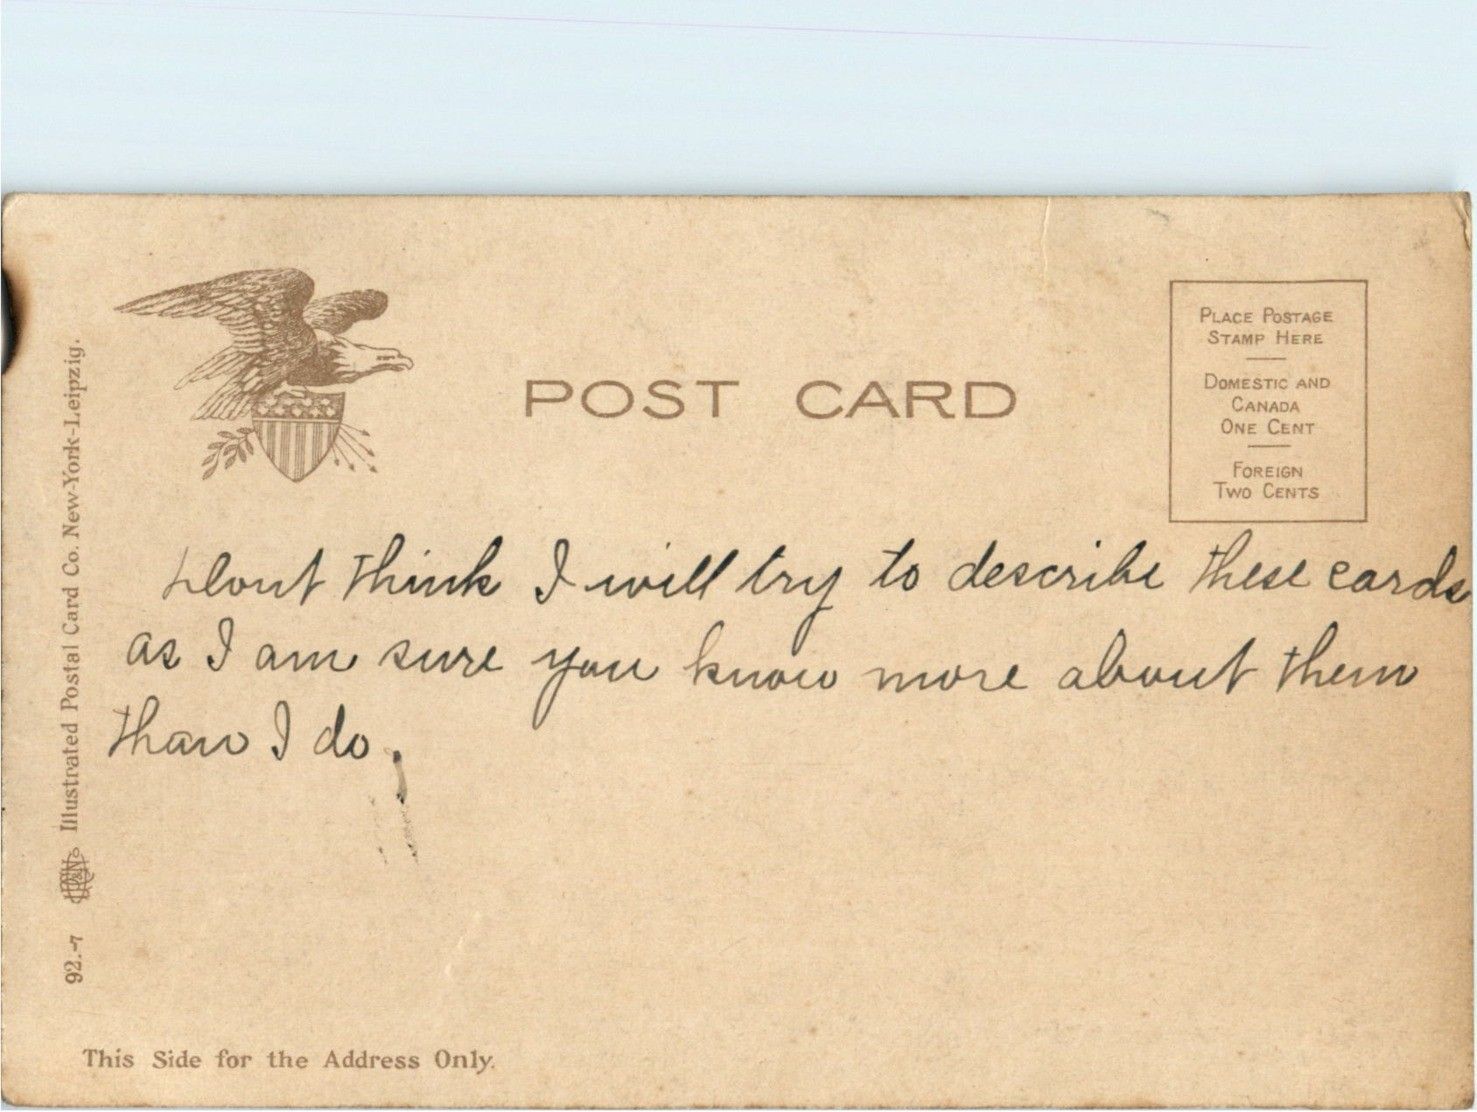 POST CARD
PLACE POSTAGE
STAMP HERE
DOMESTIC AND
CANADA
ONE CENT
FOREIGN
TWO CENTS
Dont think I will try to describe these cards
as I am sure you know more about them
than I do.
92.-7
Illustrated Postal Card Co. New-York-Leipzig.
This Side for the Address Only.